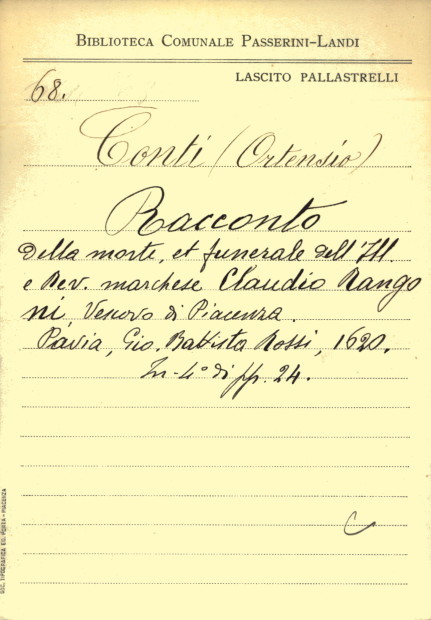 BIBLIOTECA COMUNALE PASSERINI-LANDI
LASCITO PALLASTRELLI
68.
Conti (Ortensio)
Racconto
della morte, et funerale dell'Ill.
e Rev. marchese Claudio Rango
ni, Vescovo di Piacenza.
Pavia, Gio. Battista Rossi, 1620.
In-4° di pp. 24.
C
SOC. TIPOGRAFICA ED. PORTA - PIACENZA